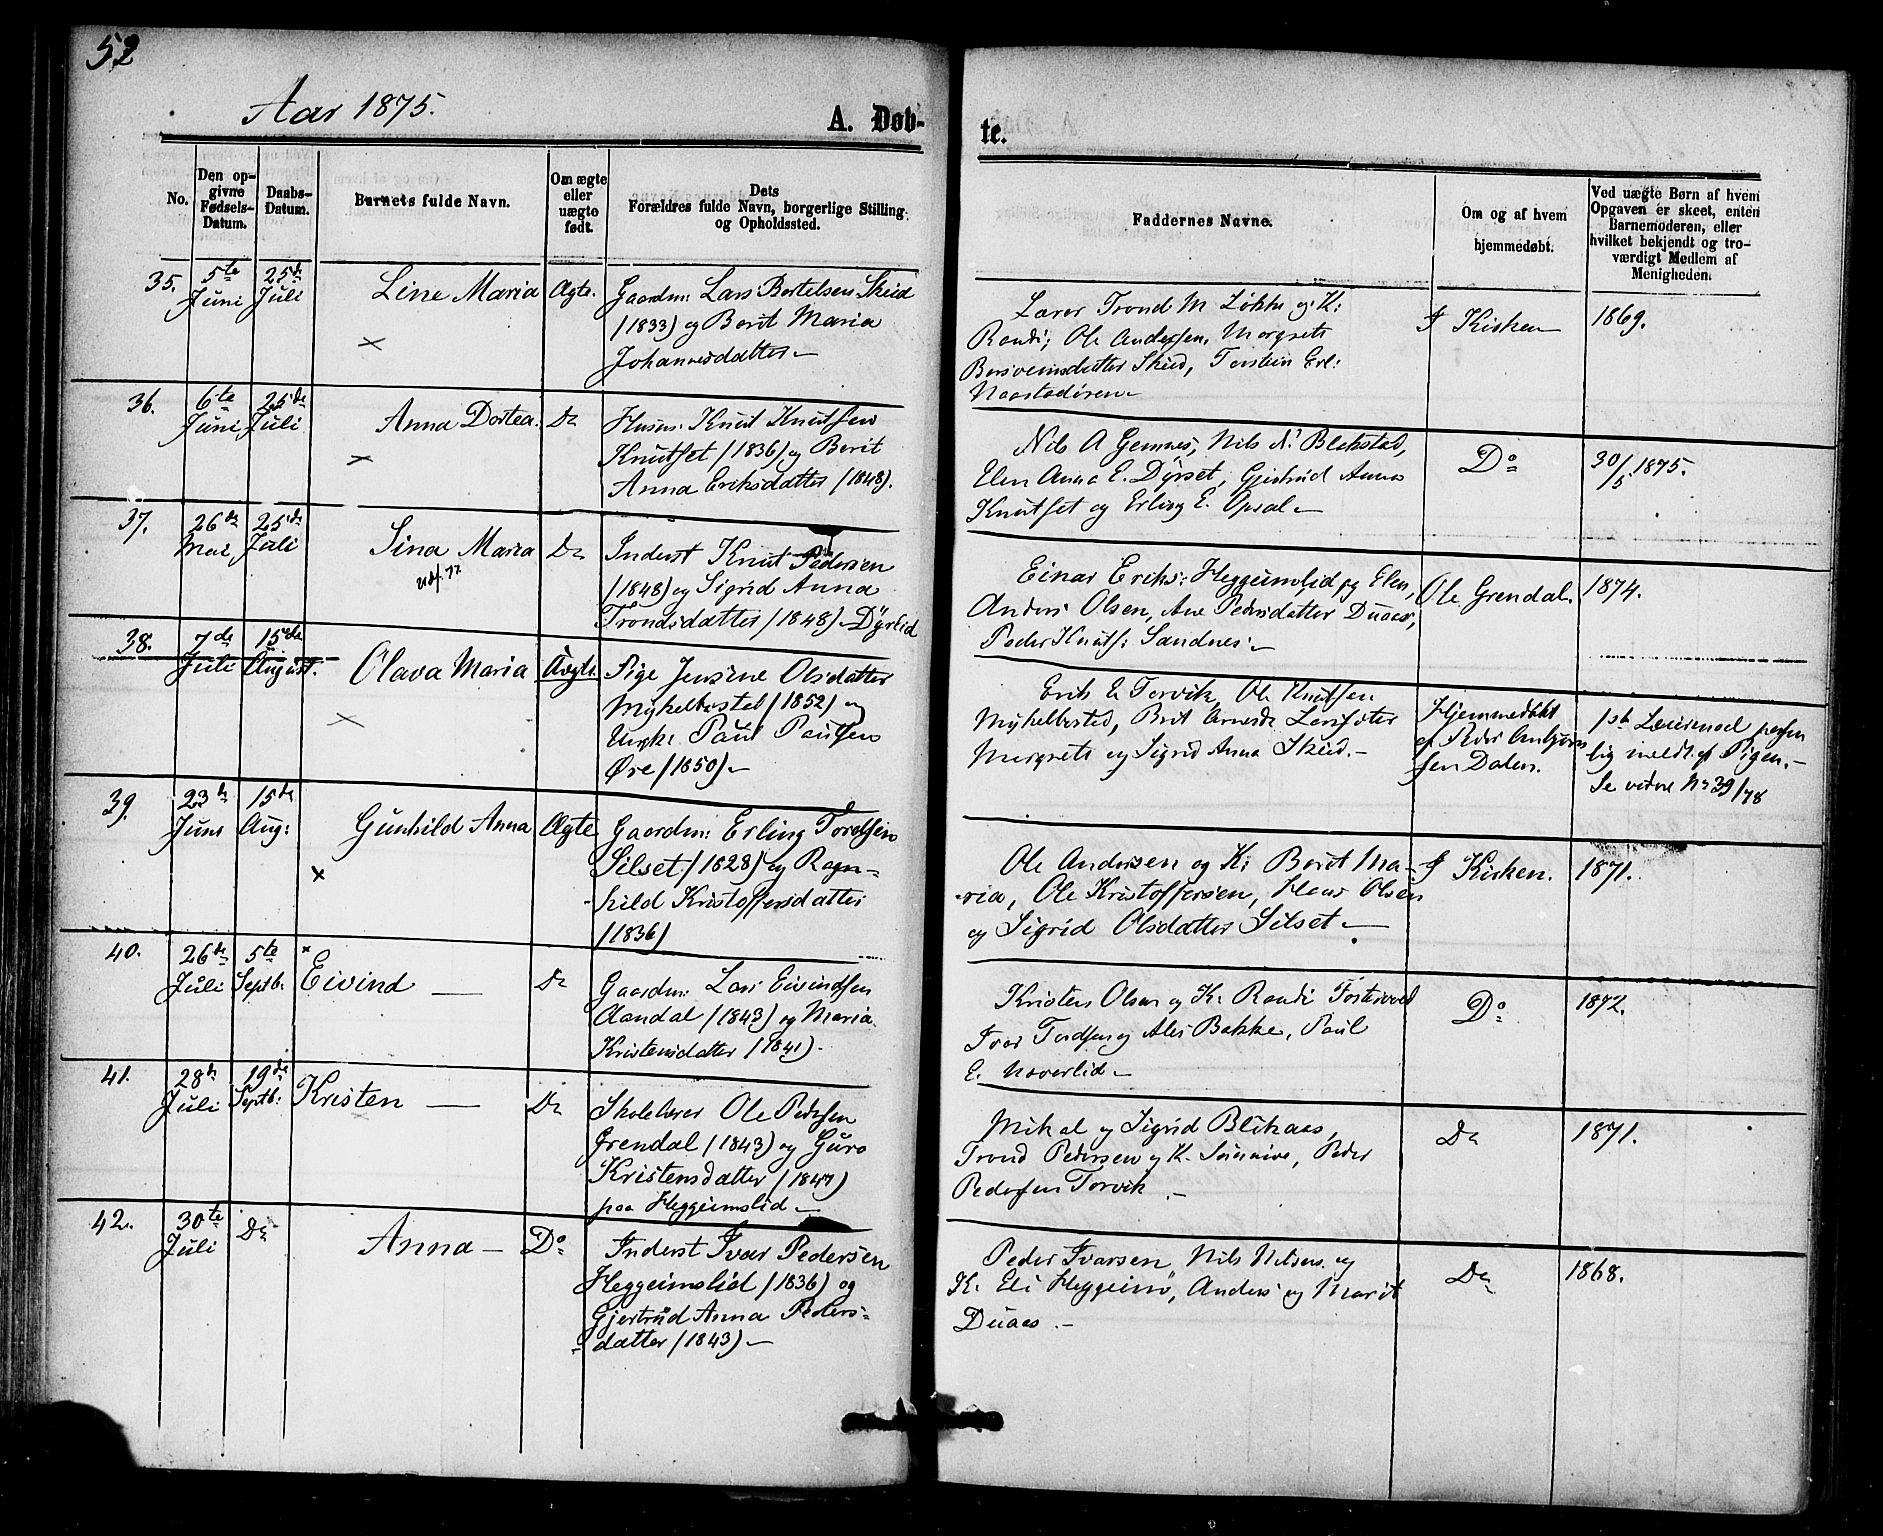 52
Aar 1875.
A. Døb-
te.
No.
Den op-
givne
Fødsels-
Datum.
Daabs-
Datum.
Barnets fulde Navn.
Om ægte
eller
uægte
født.
Dets
Forældres fulde Navn, borgerlige Stilling
og Opholdssted.
Faddernes Navne.
Om og af hvem
hjemmedøbt.
Ved uægte Børn af hvem
Opgaven er skeet, enten
Barnemoderen, eller
hvilket bekjendt og tro-
værdigt Medlem af
Menigheden.
35.
5te
Juni
25de
Juli
Line Maria
Ægte.
Gaardm: Lars Bertelsen Skud
(1833) og Berit Maria
Johannesdatter
Lærer Trond M Løkke og K:
Randi; Ole Andersen, Margrete
Skud, Torstein Erl:
Naastadøren
I Kirken
1869.
36.
6te
Juni
25de
Juli
Anna Dortea.
Do
Husm: Knut Knutsen
Knutset (1836) og Berit
Anna Eriksdatter (1848).
Nils A Gemnes, Nils N. Blekstad,
Elen Anna E. Dyrset, Gjertrud Anna
Knutset og Erling E. Opsal
Do
30/5 1875.
37.
26de
Mai
25de
Juli
Sina Maria
Udf. 77
Do
Inderst Knut Pedersen
(1848) og Sigrid Anna
Trondsdatter (1848) Dyrlid
Einar Eriks: Heggeimslid og Elen,
Anders Olsen, Ane Pedersdatter Duaas,
Peder Knuts: Sandnes
Ole Grendal.
1874.
38.
7de
Juli
15de
August.
Olava Maria
Uægte
Pige Jensine Olsdatter
Mykelbostad (1852) og
Ungk: Paul Paulsen
Øre (1850)
Erik E Torvik, Ole Knutsen
Mykelbostad, Brit
Margrete og Sigrid Anna Skud.
Hjemmedøbt
af Peder
sen Dalen.
1ste Leiermaal person
lig meldt af Pigen.
Se videre No 39/78
39.
23de
Juni
15de
Aug:
Gunhild Anna
Ægte
Gaardm: Erling Tordsen
Silset (1828) og Ragn-
hild Kristoffersdatter
(1836)
Ole Andersen og K: Berit Ma-
ria, Ole Kristoffersen, Hans Olsen
og Sigrid Olsdatter Silset
I Kirken.
1871.
40.
26de
Juli
5te
Septb:
Eivind
Do
Gaardm: Lars Eivindsen
Aandal (1843) og Maria
Kristensdatter (1841)
Kristen Olsen og K: Randi
Ivar Tordsen og Ales Bakke, Paul
E. Naverlid
Do
1872.
41.
28de
Juli
19de
Septb:
Kristen
Do
Skolelærer Ole Pedersen
Grendal (1843) og Guro
Kristensdatter (1847)
paa Heggeimslid
Mikal og Sigrid Blikaas,
Trond Pedersen og K. Sunnive, Peder
Pedersen Torvik
Do
1871.
42.
30te
Juli
Do
Anna
Do
Inderst Ivar Pedersen
Heggeimslid (1836) og
Gjertrud Anna Peders-
datter (1843)
Peder Ivarsen, Nils Nilsen og
K. Eli Heggeimø, Anders og Marit
Duaas
Do
1868.